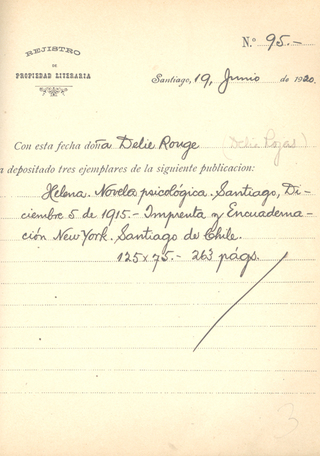 N.° 95.-
REJISTRO
DE
PROPIEDAD LITERARIA
Santiago, 19, Junio de 1920.
Con esta fecha doña Delie Rouge (Delia Rojas)
a depositado tres ejemplares de la siguiente publicacion:
Helena. Novela psicológica. Santiago, Di-
ciembre 5 de 1915.- Imprenta y Encuaderna-
ción New York. Santiago de Chile.
125 x 75.- 263 págs.
3